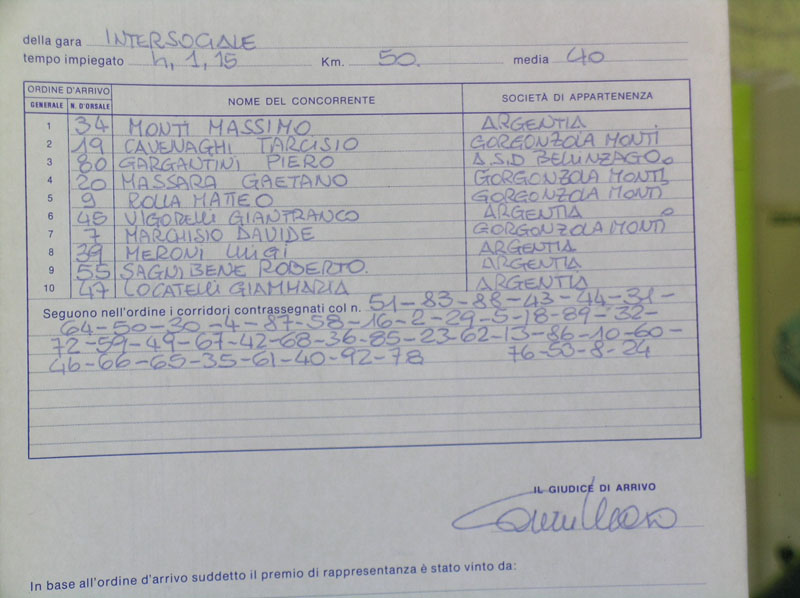 della gara INTERSOCIALE
tempo impiegato h, 1, 15 Km. 50. media 40
ORDINE D'ARRIVO NOME DEL CONCORRENTE SOCIETÀ DI APPARTENENZA
GENERALE N. D'ORSALE
1 34 MONTI MASSIMO ARGENTIA
2 19 CAVENAGHI TARCISIO GORGONZOLA MONTI
3 80 GARGANTINI PIERO A.S.D BELLINZAGO
4 20 MASSARA GAETANO GORGONZOLA MONTI
5 9 ROLLA MATTEO GORGONZOLA MONTI
6 45 VIGORELLI GIANFRANCO ARGENTIA
7 7 MARCHISIO DAVIDE GORGONZOLA MONTI
8 39 MERONI LUIGI ARGENTIA
9 55 SAGNIBENE ROBERTO. ARGENTIA
10 47 LOCATELLI GIAMMARIA ARGENTIA
Seguono nell'ordine i corridori contrassegnati col n. 51-83-88-43-44-31-
64-50-30-4-87-58-16-2-29-5-18-89-32-
72-59-49-67-42-68-36-85-23-62-13-86-10-60-
46-66-65-35-61-40-92-78 76-53-8-24
IL GIUDICE DI ARRIVO
In base all'ordine d'arrivo suddetto il premio di rappresentanza è stato vinto da: